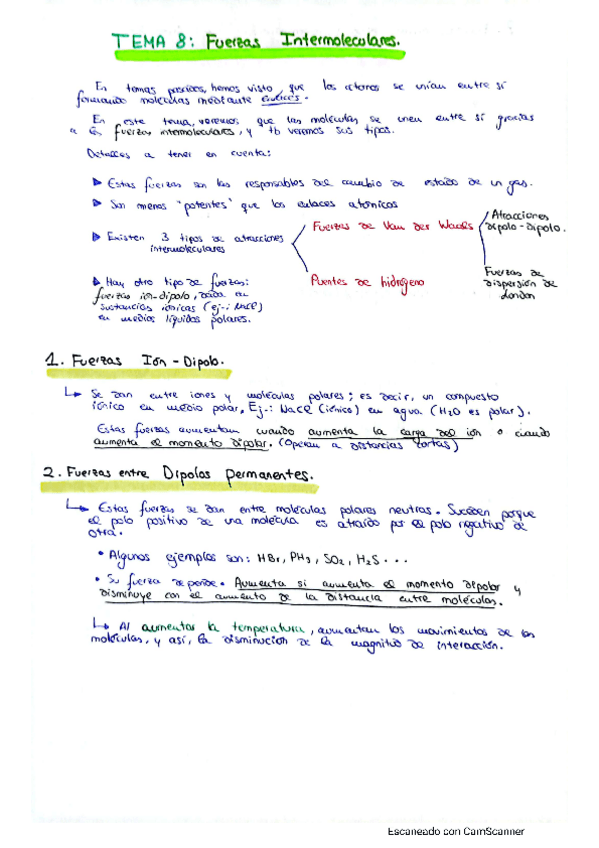 TEMA 8: Fuerzas Intermoleculares.
En temas pasados, hemos visto que los átomos se unían entre sí
formando moléculas mediante enlaces.
En este tema, veremos que las moléculas se unen entre sí gracias
a las fuerzas intermoleculares, y tb veremos sus tipos.
Detalles a tener en cuenta:
▶ Estas fuerzas son las responsables del cambio de estado de un gas.
▶ Son menos "potentes" que los enlaces atómicos
▶ Existen 3 tipos de atracciones
intermoleculares
Fuerzas de Van der Waals
Atracciones
dipolo-dipolo.
Fuerzas de
dispersión de
London
Puentes de hidrógeno
▶ Hay otro tipo de fuerzas:
fuerzas ion-dipolo, dada en
sustancias iónicas (ej-: NaCl)
en medios líquidos polares.
1. Fuerzas Ión - Dipolo.
↳ Se dan entre iones y moléculas polares; es decir, un compuesto
iónico en medio polar, Ej-: NaCl (iónico) en agua (H2O es polar).
Estas fuerzas aumentan cuando aumenta la carga del ión o cuando
aumenta el momento dipolar. (Operan a distancias cortas)
2. Fuerzas entre Dipolos Permanentes.
↳ Estas fuerzas se dan entre moléculas polares neutras. Suceden porque
el polo positivo de una molécula es atraído por el polo negativo de
otra.
• Algunos ejemplos son: HBr, PH3, SO2, H2S ...
• Su fuerza depende. Aumenta si aumenta el momento dipolar y
disminuye con el aumento de la distancia entre moléculas.
↳ Al aumentar la temperatura, aumentan los movimientos de las
moléculas, y así, la disminución de la magnitud de interacción.
Escaneado con CamScanner